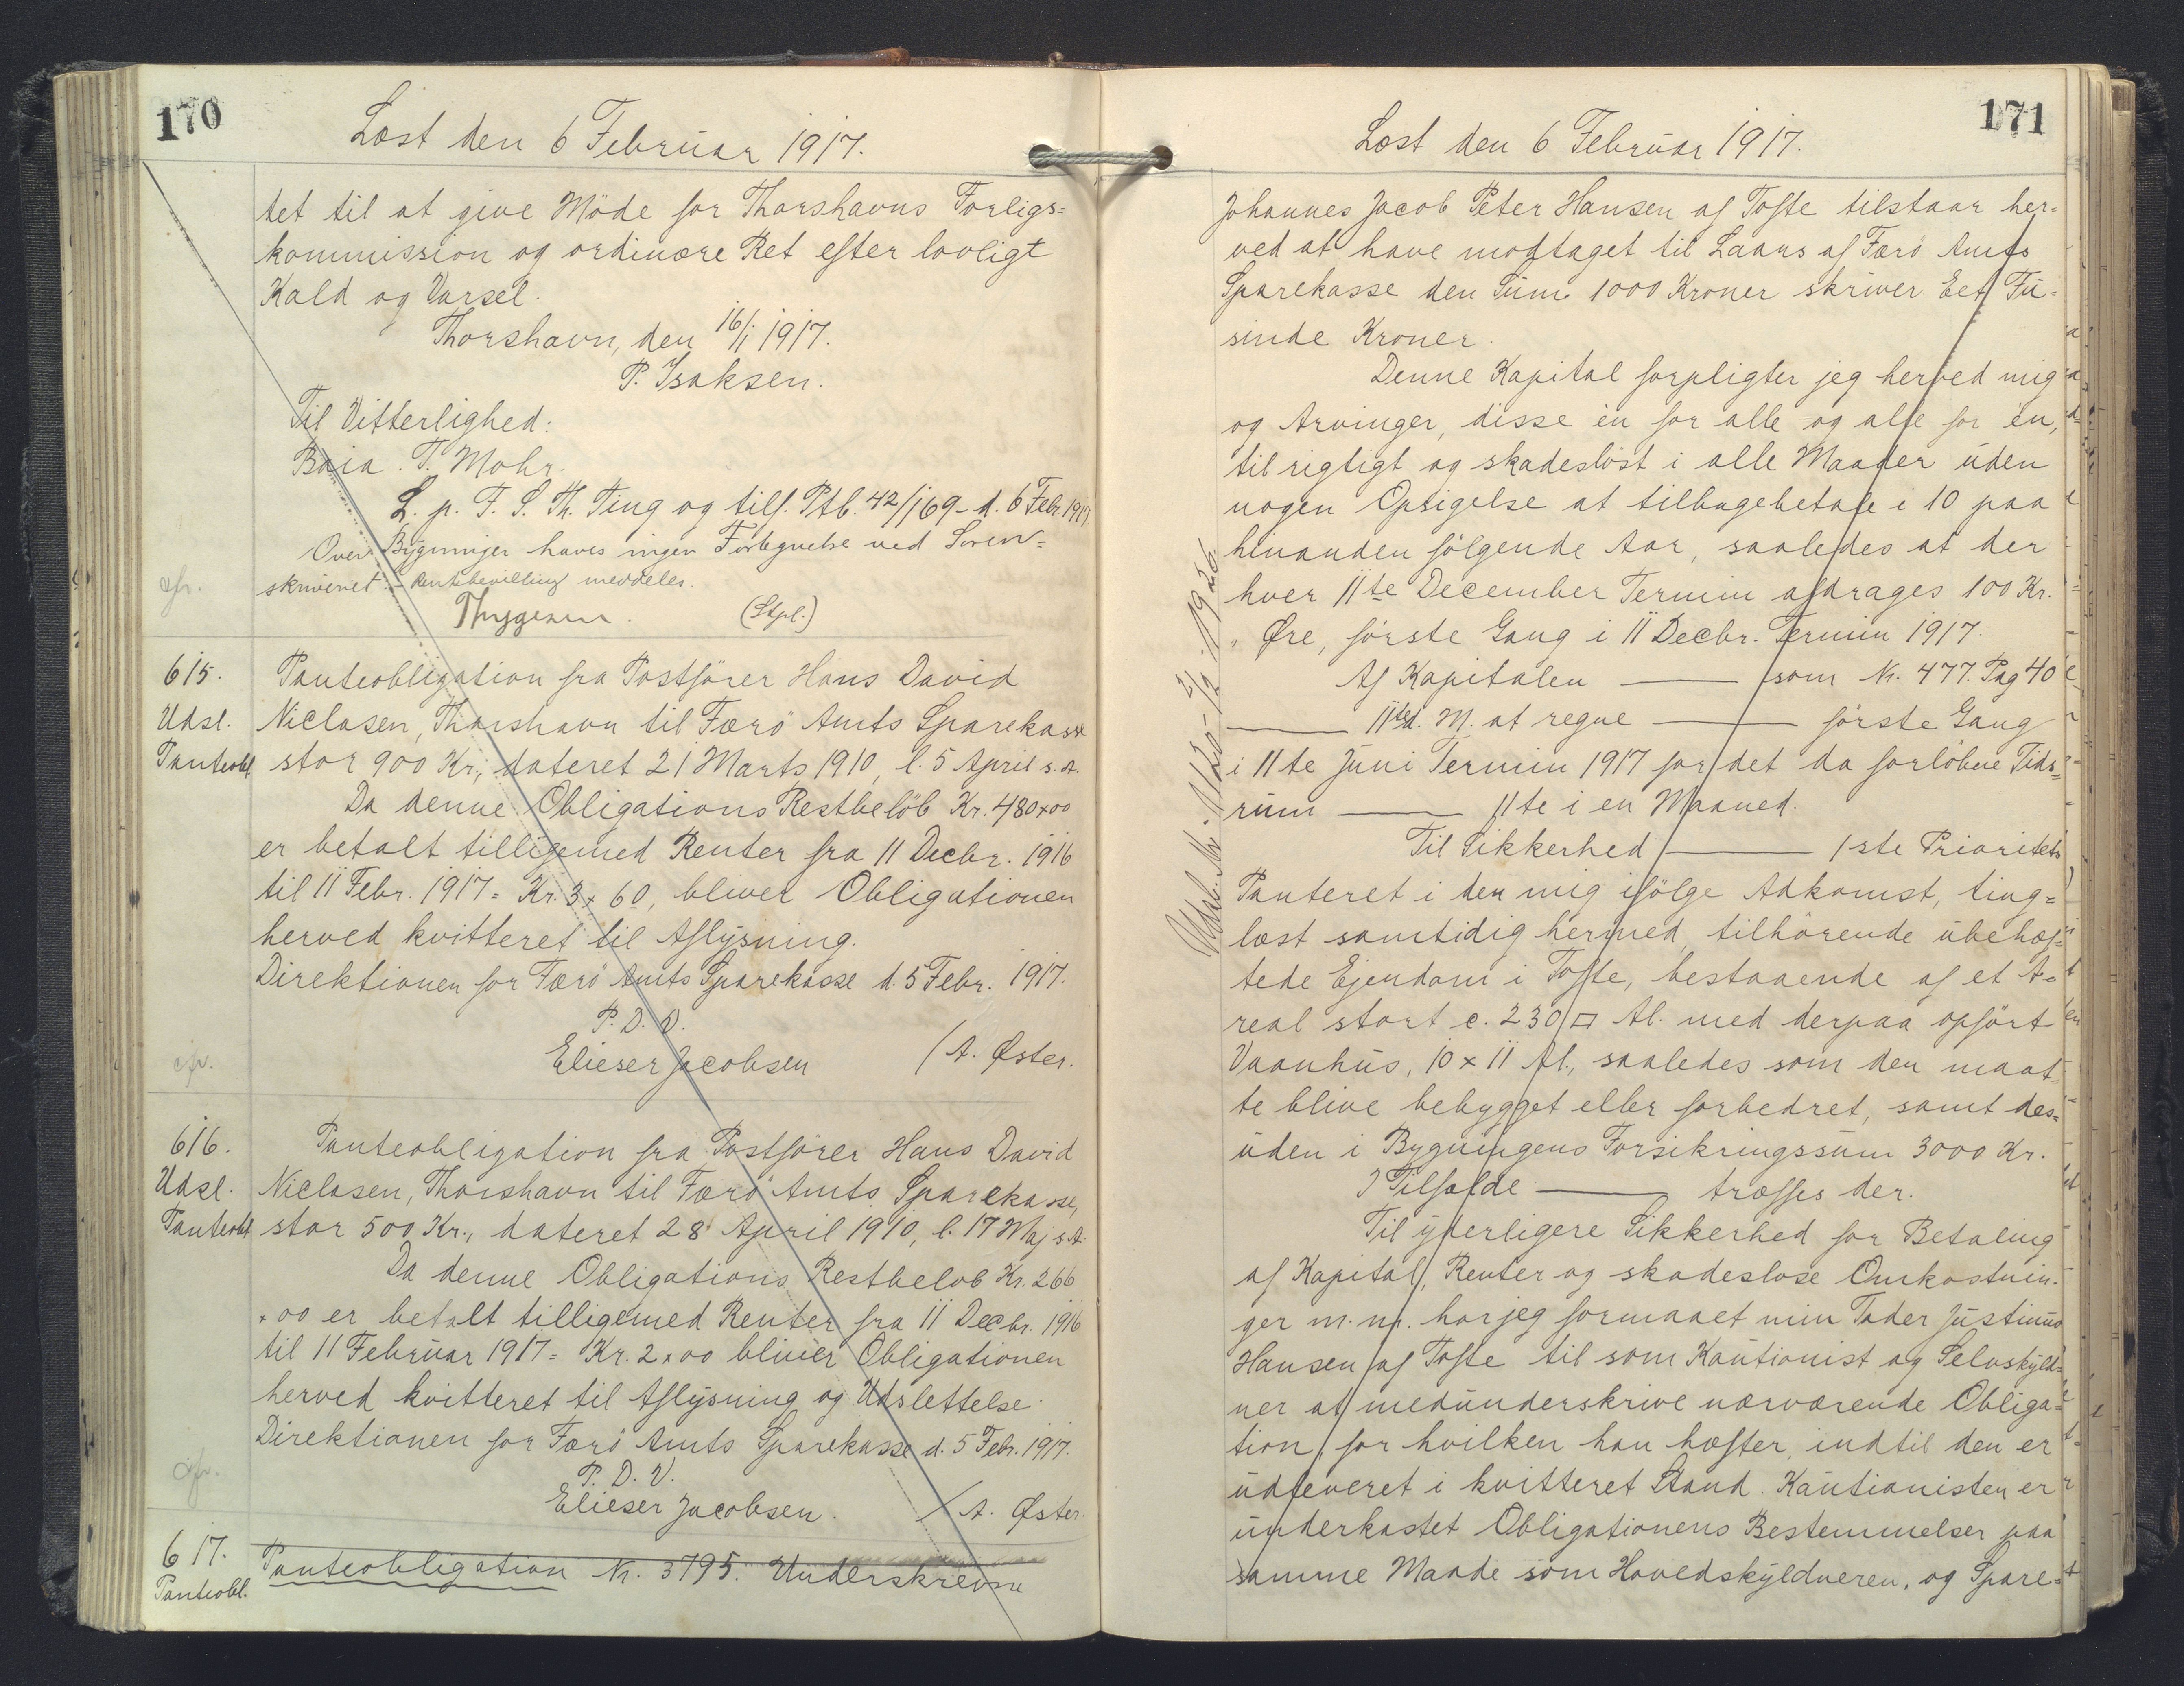 170
Læst den 6 Februar 1917.
tet til at give Möde for Thorshavns Forligs=
kommission og ordinære Ret efter lovligt
Kald og Varsel.
Thorshavn, den 16/1 1917.
P. Isaksen.
Til Vitterlighed:
T. Mohr.
L. p. F. S. Th. Ting og tilf. Ptb. 42/169 - d. 6 Febr. 1917
Over Bygninger haves ingen ved Soren=
skriveriet - meddeles.
Thygesen. (Stpl.)
615.
Udsl.
Panteobl.
Panteobligation fra Postförer Hans David
Niclasen, Thorshavn til Færö Amts Sparekasse
stor 900 Kr., dateret 21 Marts 1910, l. 5 April s. A.
Da denne Obligations Restbelöb Kr. 480 x 00
er betalt tilligemed Renter fra 11 Decbr. 1916
til 11 Febr. 1917 = Kr. 3 x 60, bliver Obligationen
herved kvitteret til Aflysning.
Direktionen for Færö Amts Sparekasse d. 5 Febr. 1917.
P. D. V.
Elieser Jacobsen / A. Øster.
616.
Udsl.
Panteobl.
Panteobligation fra Postförer Hans David
Niclasen, Thorshavn til Færö Amts Sparekasse,
stor 500 Kr., dateret 28 April 1910, l. 17 Maj s. A.
Da denne Obligations Restbelöb Kr. 266
x 00 er betalt tilligemed Renter fra 11 Decbr. 1916
til 11 Februar 1917 = Kr. 2 x 00 bliver Obligationen
herved kvitteret til Aflysning og Udslettelse.
Direktionen for Færö Amts Sparekasse d. 5 Febr. 1917.
P. D. V.
Elieser Jacobsen. / A. Øster.
617.
Panteobl.
Panteobligation Nr. 3795. Underskrevne
171
Læst den 6 Februar 1917.
Johannes Jacob Peter Hansen af Tofte tilstaar her=
ved at have modtaget til Laans af Færö Amts
Sparekasse den Sum 1000 Kroner skriver Eet Tu=
sinde Kroner.
Denne Kapital forpligter jeg herved mig
og Arvinger, disse én for alle og alle for én,
til rigtigt og skadeslöst i alle Maader uden
nogen Opsigelse at tilbagebetale i 10 paa
hinanden fölgende Aar, saaledes at der
hver 11te December Termin afdrages 100 Kr.
" Øre, förste Gang i 11 Decbr. Termin 1917.
Af Kapitalen — som Nr. 477. Pag 40
— 11te d. M. at regne — förste Gang
i 11te Juni Termin 1917 for det da forlöbne Tids=
rum — 11te i en Maaned.
Til Sikkerhed — 1ste Prioritets
Panteret i den mig ifölge Adkomst, ting=
læst samtidig hermed, tilhörende ubehæf=
tede Ejendom i Tofte, bestaaende af et A=
real stort c. 230 □ Al. med derpaa opfört
Vaanhus, 10 x 11 Al., saaledes som den maat
te blive bebygget eller forbedret, samt des=
uden i Bygningens Forsikringssum 3000 Kr.
I Tilfælde — træffes der.
Til yderligere Sikkerhed for Betaling
af Kapital, Renter og skadeslöse Omkostnin=
ger m. m. har jeg formaaet min Fader Justinus
Hansen af Tofte til som Kautionist og Selvskyld=
ner at medunderskrive nærværende Obliga=
tion, for hvilken han hæfter, indtil den er
udleveret i kvitteret Stand. Kautionisten er
underkastet Obligationens Bestemmelser paa
samme Maade som Hovedskyldneren, og Spare=